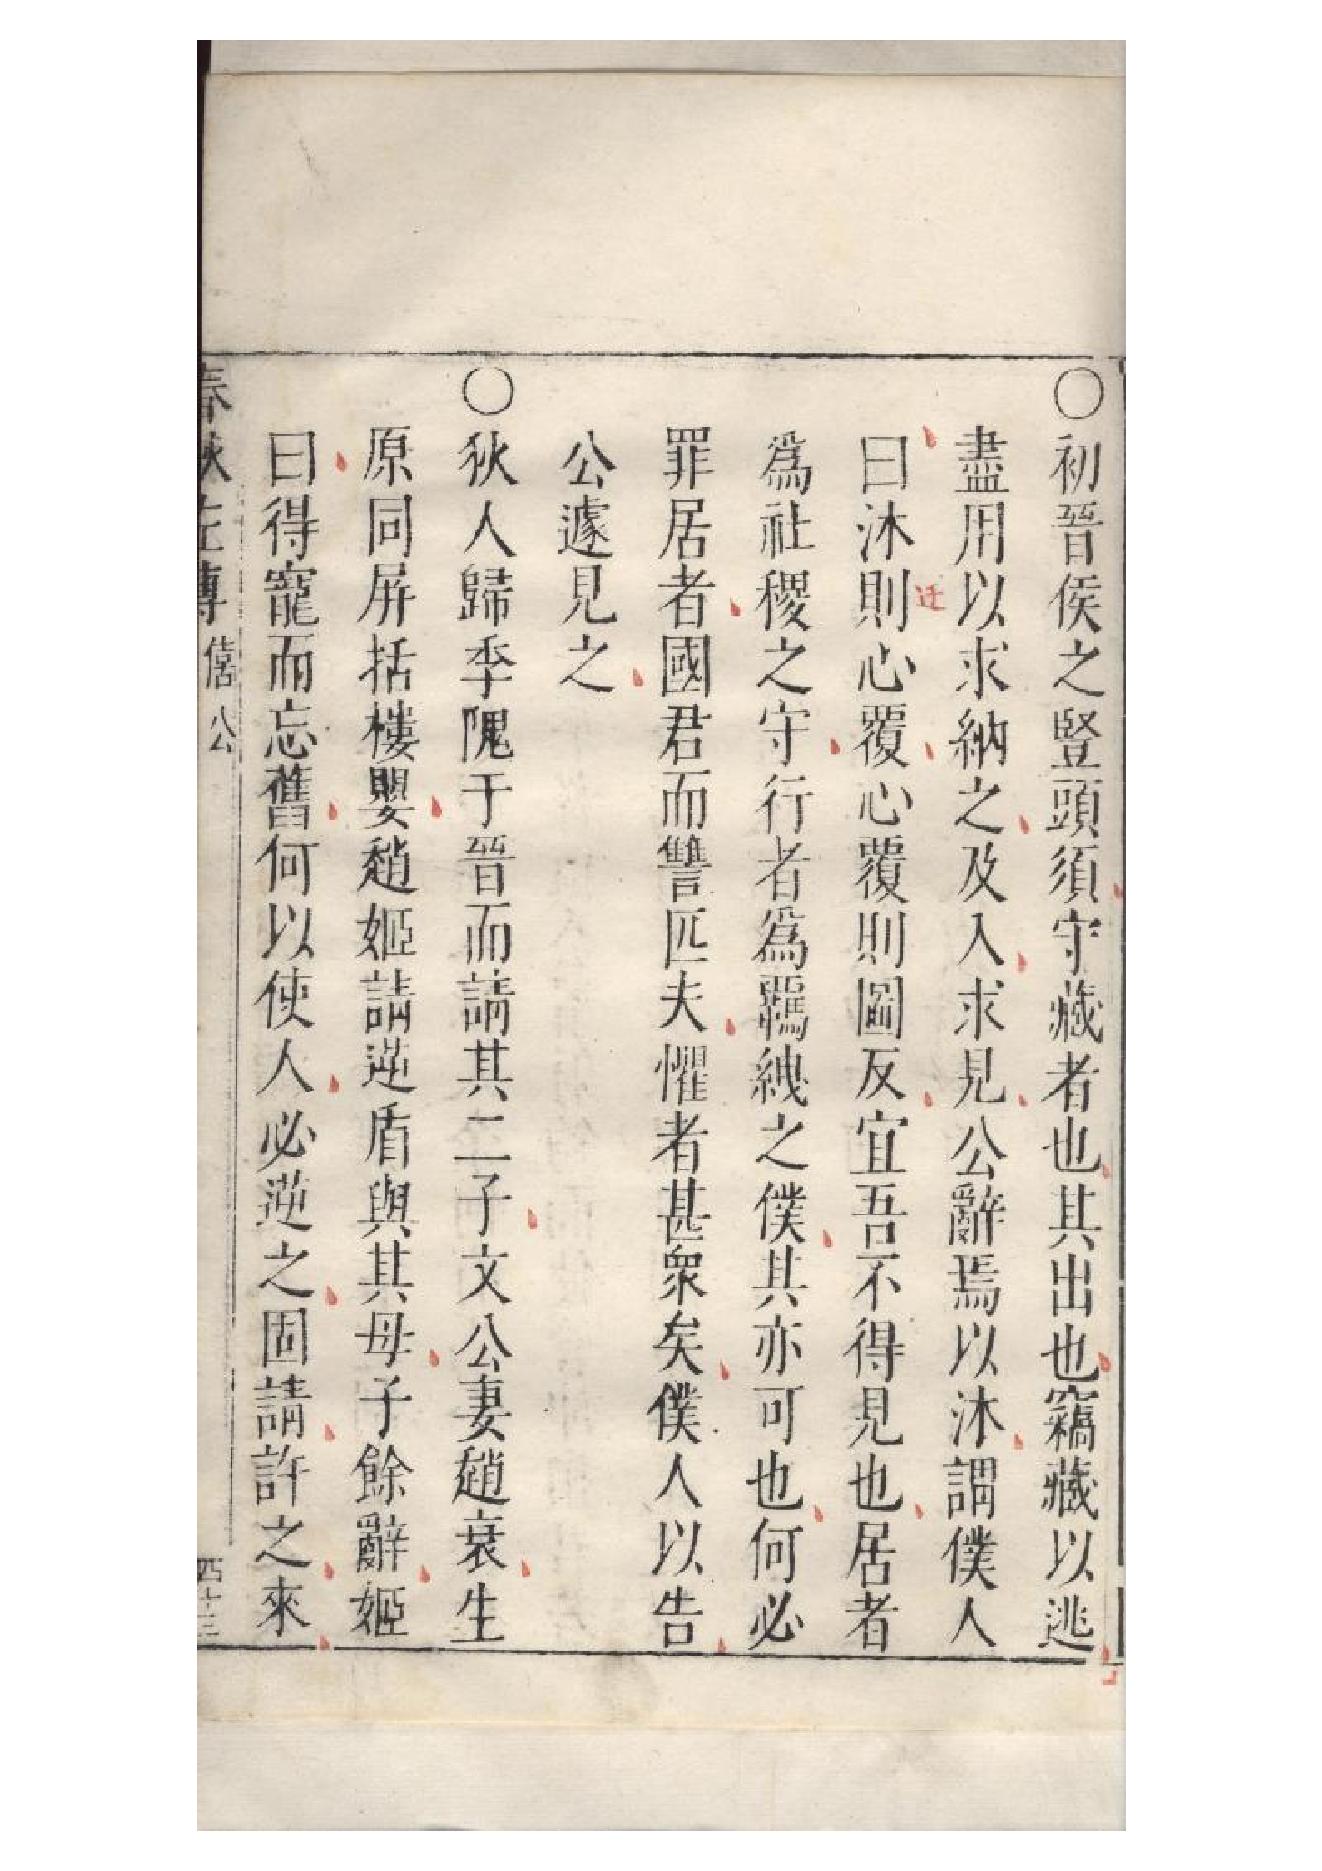 〇初晉侯之豎頭須守藏者也其出也竊藏以逃
盡用以求納之及入求見公辭焉以沐謂僕人
曰沐則心覆心覆則圖反宜吾不得見也居者
爲社稷之守行者爲羈絏之僕其亦可也何必
罪居者國君而讐匹夫懼者甚衆矣僕人以告
公遽見之
〇狄人歸季隗于晉而請其二子文公妻趙衰生
原同屏括樓嬰趙姬請逆盾與其母子餘辭姬
曰得寵而忘舊何以使人必逆之固請許之來
春秋左傳 僖公 四十三